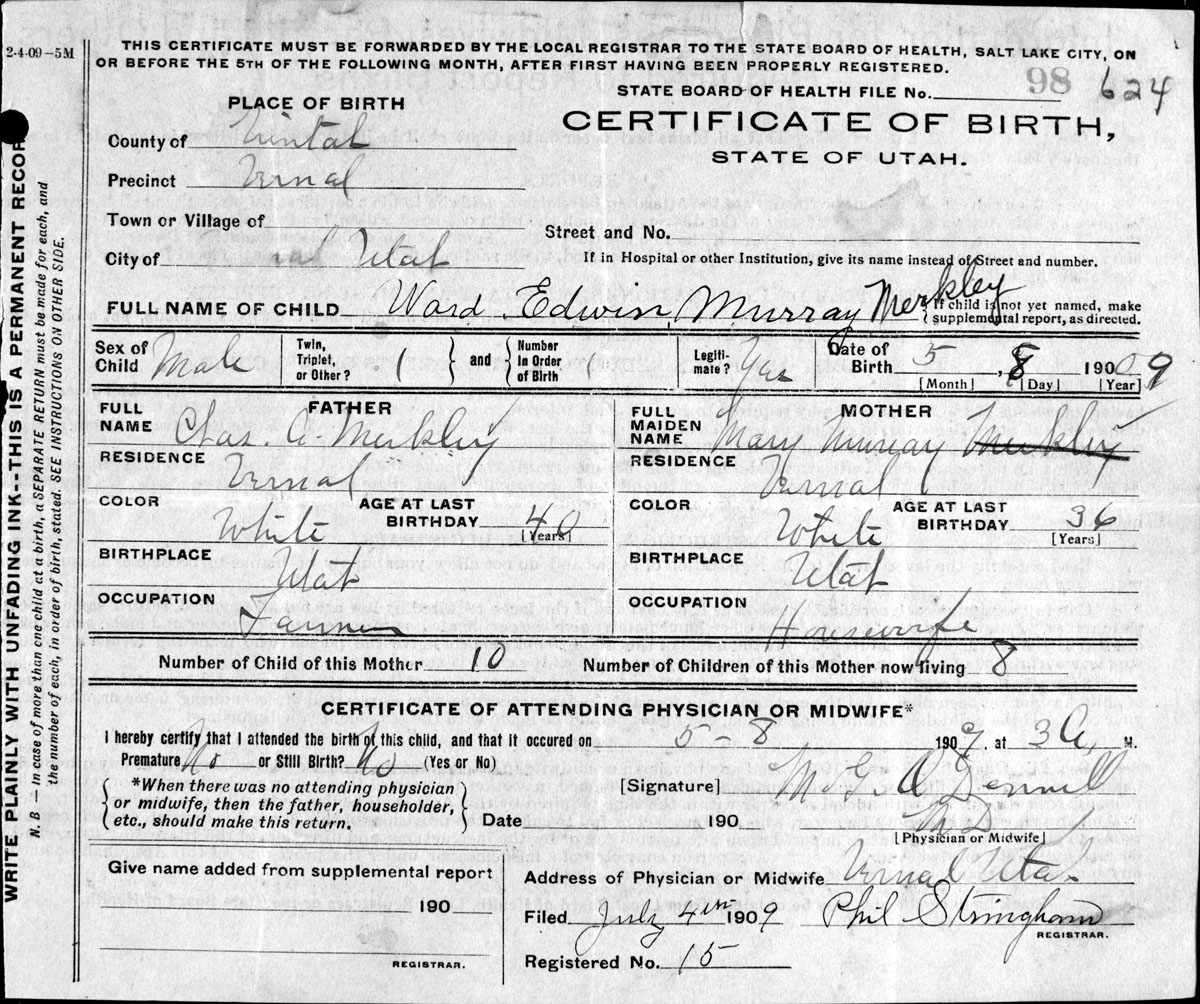 2-4-09-5M
THIS CERTIFICATE MUST BE FORWARDED BY THE LOCAL REGISTRAR TO THE STATE BOARD OF HEALTH, SALT LAKE CITY, ON
OR BEFORE THE 5TH OF THE FOLLOWING MONTH, AFTER FIRST HAVING BEEN PROPERLY REGISTERED.
STATE BOARD OF HEALTH FILE No. 98 624
PLACE OF BIRTH
CERTIFICATE OF BIRTH,
STATE OF UTAH.
County of Uintah
Precinct Vernal
Town or Village of
Street and No.
City of nal Utah
If in Hospital or other Institution, give its name instead of Street and number.
FULL NAME OF CHILD Ward Edwin Murray Merkley
{ If child is not yet named, make
supplemental report, as directed.
Sex of Child Male
Twin, Triplet, or Other? 1 } and { Number in Order of Birth 1
Legiti-mate? Yas
Date of Birth 5, 8 1909
[Month] [Day] [Year]
FATHER
FULL NAME Chas. A. Merkley
RESIDENCE Vernal
COLOR White
AGE AT LAST BIRTHDAY 40 [Years]
BIRTHPLACE Utah
OCCUPATION Farmer
MOTHER
FULL MAIDEN NAME Mary Murray Merkley
RESIDENCE Vernal
COLOR White
AGE AT LAST BIRTHDAY 36 [Years]
BIRTHPLACE Utah
OCCUPATION Housewife
Number of Child of this Mother 10 Number of Children of this Mother now living 8
CERTIFICATE OF ATTENDING PHYSICIAN OR MIDWIFE*
I hereby certify that I attended the birth of this child, and that it occured on 5-8 1909, at 3 A, M.
Premature No or Still Birth? No (Yes or No)
*When there was no attending physician
or midwife, then the father, householder,
etc., should make this return.
[Signature]
Date 190 M D
[Physician or Midwife]
Give name added from supplemental report
190
REGISTRAR.
Address of Physician or Midwife Vernal Utah
Filed July 4th 1909 Phil Stringham
REGISTRAR.
Registered No. 15
WRITE PLAINLY WITH UNFADING INK--THIS IS A PERMANENT RECOR
N. B. — In case of more than one child at a birth, a SEPARATE RETURN must be made for each, and
the number of each, in order of birth, stated. SEE INSTRUCTIONS ON OTHER SIDE.